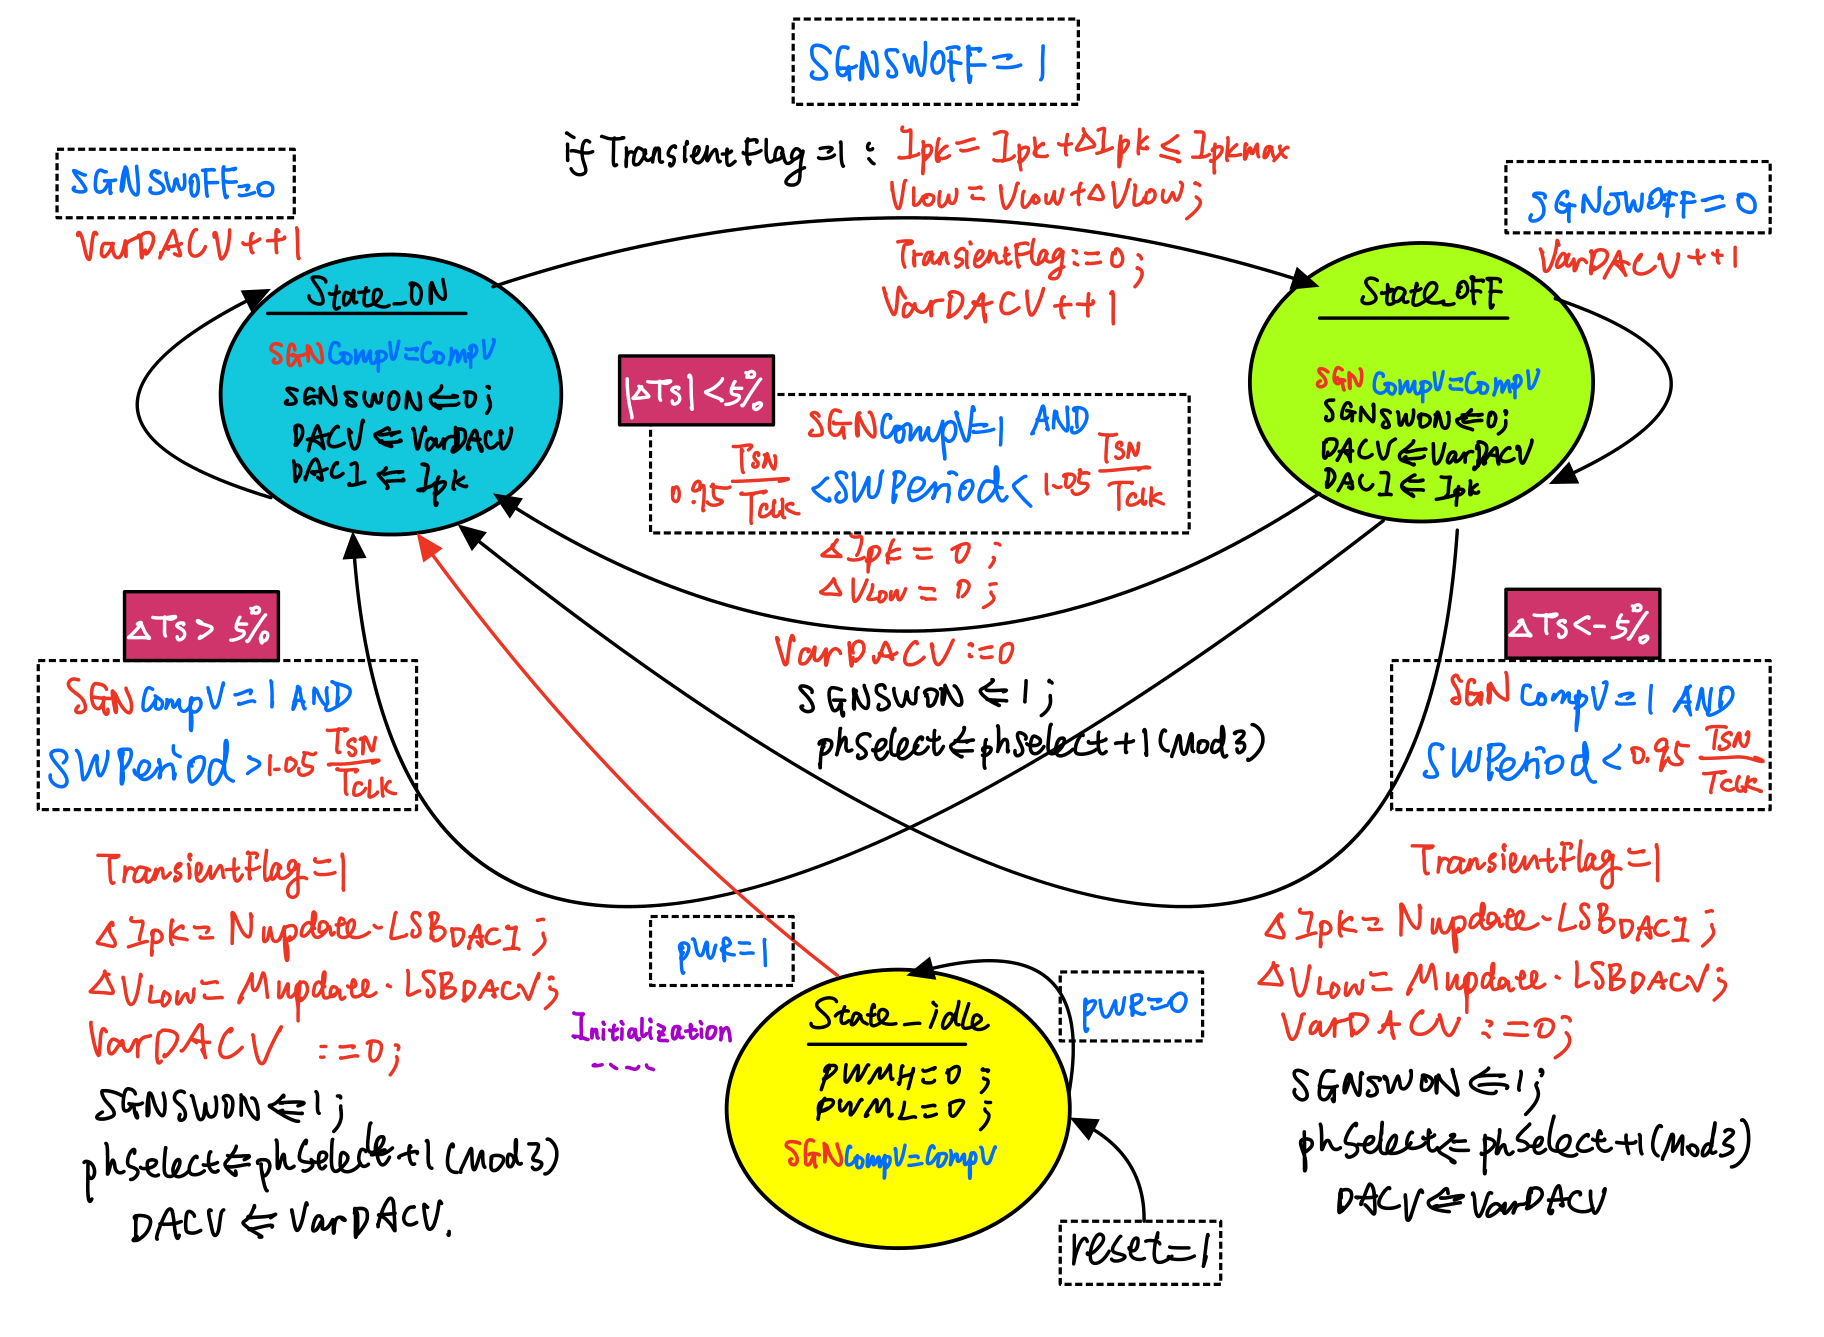 SGNSWOFF = 1
if TransientFlag = 1 : Ipk = Ipk + ΔIpk ≤ Ipkmax
VLow = VLow + ΔVLow ;
TransientFlag := 0 ;
VarDACV ++1
SGNSWOFF=0
VarDACV ++1
SGNSWOFF = 0
VarDACV ++1
State_ON
SGNCompV=CompV
SGNSWON ⇐ 0 ;
DACV ⇐ VarDACV
DACI ⇐ Ipk
State_OFF
SGN CompV=CompV
SGNSWON ⇐ 0;
DACV ⇐ VarDACV
DACI ⇐ Ipk
|ΔTs| < 5%
SGNCompV=1 AND
0.95 TSN/TCLK < SWPeriod < 1.05 TSN/TCLK
ΔIpk = 0 ;
ΔVLow = 0 ;
VarDACV :=0
SGNSWON ⇐ 1 ;
phSelect ⇐ phSelect + 1 (Mod3)
ΔTs > 5%
SGNCompV = 1 AND
SWPeriod > 1.05 TSN/TCLK
TransientFlag = 1
ΔIpk = Nupdate · LSBDACI ;
ΔVLow = Mupdate · LSBDACV ;
VarDACV :=0;
SGNSWON ⇐ 1 ;
phSelect ⇐ phSelect +1 (Mod3)
DACV ⇐ VarDACV.
ΔTs < -5%
SGN CompV = 1 AND
SWPeriod < 0.95 TSN/TCLK
TransientFlag = 1
ΔIpk = Nupdate · LSBDACI ;
ΔVLow = Mupdate · LSBDACV ;
VarDACV :=0;
SGNSWON ⇐ 1 ;
phSelect ⇐ phSelect +1 (Mod3)
DACV ⇐ VarDACV
PWR=1
Initialization
PWR=0
State_idle
PWMH=0 ;
PWML=0 ;
SGNCompV=CompV
reset=1